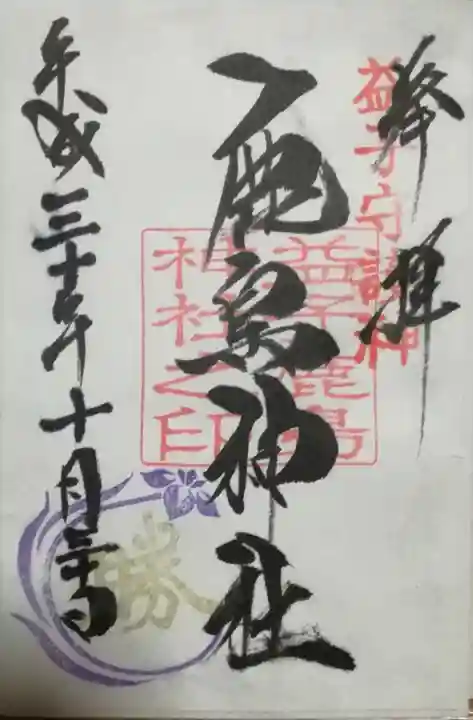 奉拝
益子守護神
鹿島神社
益子鹿島
神社之印
平成三十年十月三十日
勝